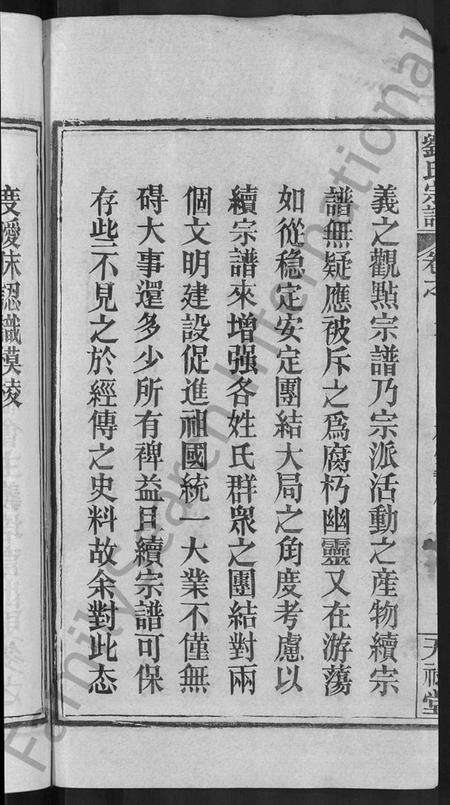 劉氏宗譜 卷之
天祿堂
義之觀點宗譜乃宗派活動之産物續宗
譜無疑應被斥之爲腐朽幽靈又在游蕩
如從穩定安定團結大局之角度考慮以
續宗譜來增强各姓氏群衆之團結對兩
個文明建設促進祖國統一大業不僅無
碍大事還多少所有裨益且續宗譜可保
存些不見之於經傳之史料故余對此态
度曖昧認識模棱
FamilySearch International